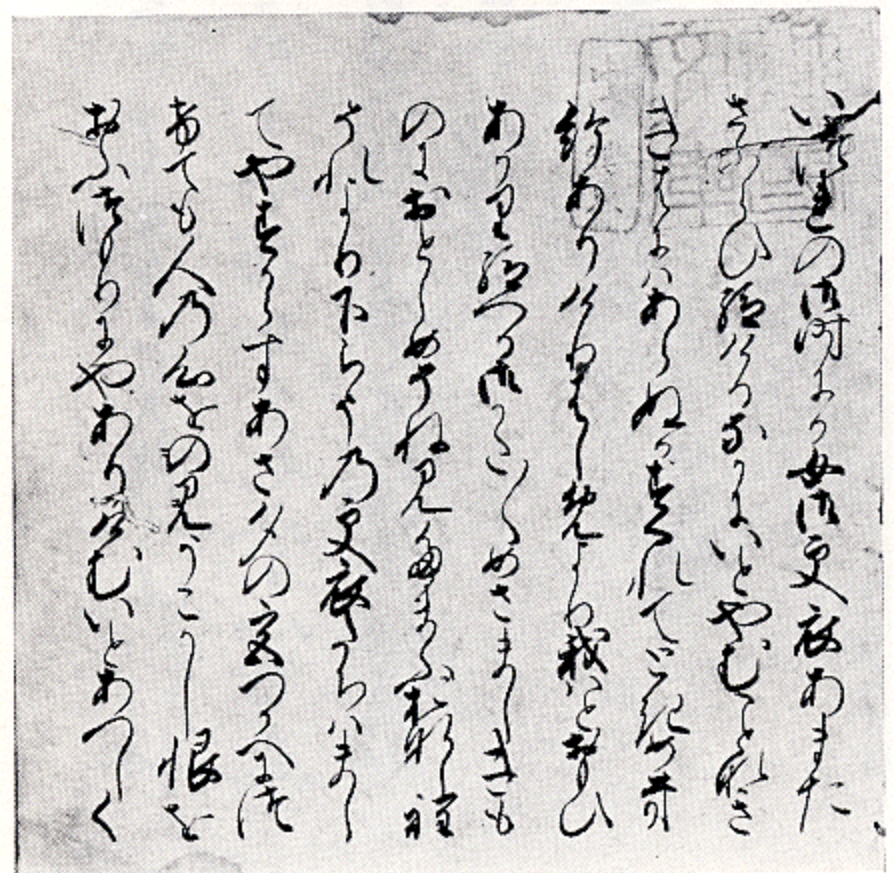 いつれの御時にか女御更衣あまた
さふらひ給けるなかにいとやむことなき
きはにはあらぬかすくれてときめき
給ありけりはしめより我はとおもひ
あかり給へる御かた〳〵めさましきも
のにおとしめそねみたまふおなし程
それより下らうの更衣たちはまし
てやすからすあさ夕の宮つかへにつ
けても人の心をのみうこかし恨を
おふつもりにやありけむいとあつしく